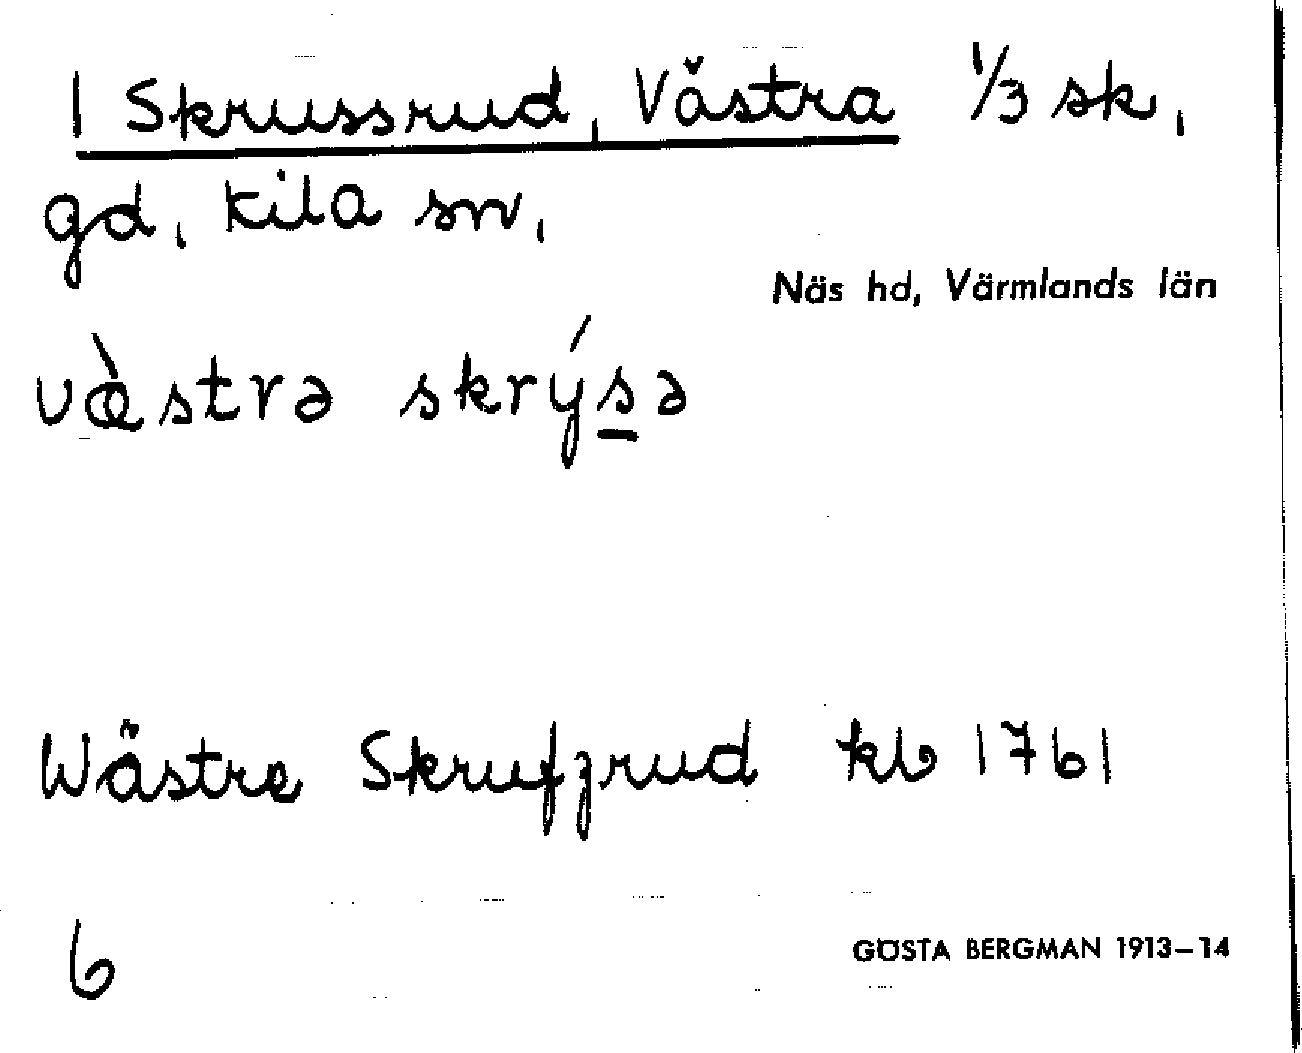 1 Skrussrud, Västra 1/3 sk,
gd, Kila sn,
Näs hd, Värmlands län
væ̀strə skrýs̲ə
Wästre Skrufzrud kb 1761
6
GÖSTA BERGMAN 1913–14